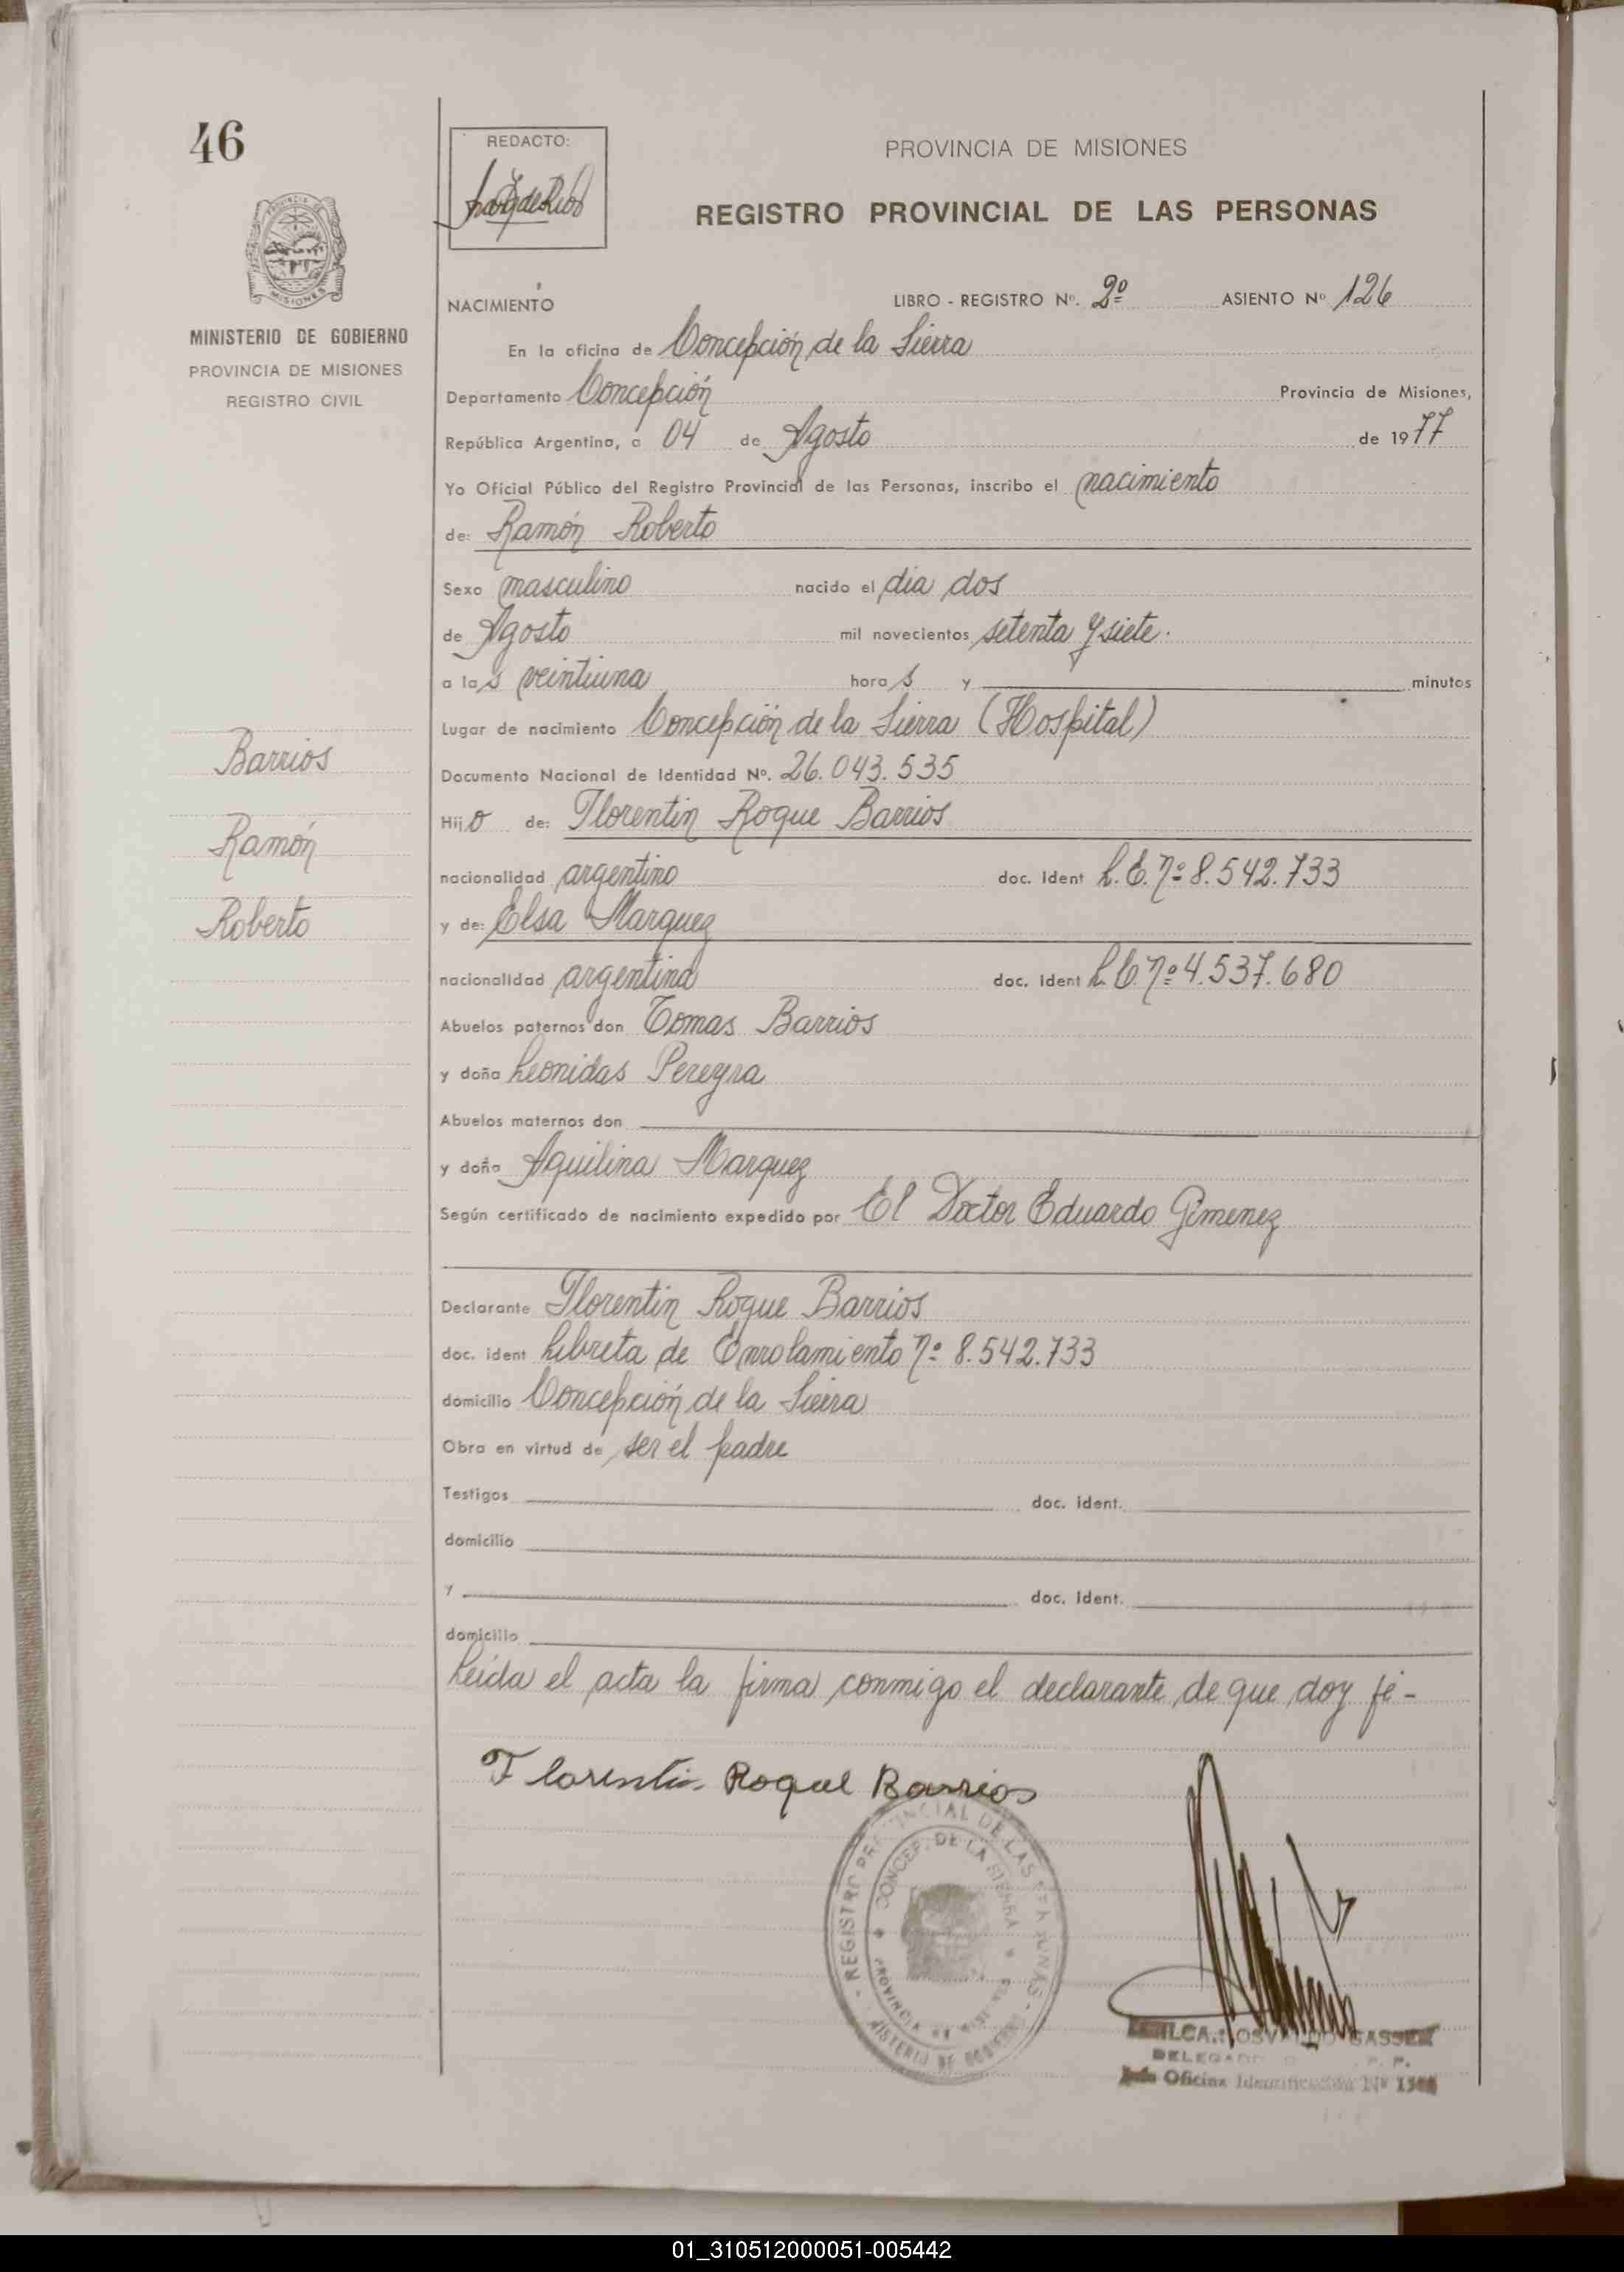 46
REDACTO:
PROVINCIA DE MISIONES
REGISTRO PROVINCIAL DE LAS PERSONAS
MISIONES
MINISTERIO DE GOBIERNO
PROVINCIA DE MISIONES
REGISTRO CIVIL
NACIMIENTO LIBRO - REGISTRO Nº. 2º ASIENTO Nº 126
En la oficina de Concepción de la Sierra
Departamento Concepción Provincia de Misiones,
República Argentina, a 04 de Agosto de 1977
Yo Oficial Público del Registro Provincial de las Personas, inscribo el nacimiento
de: Ramón Roberto
Sexo masculino nacido el dia dos
de Agosto mil novecientos setenta y siete.
a las veintiuna horas y minutos
Lugar de nacimiento Concepción de la Sierra (Hospital)
Barrios
Documento Nacional de Identidad Nº. 26.043.535
Ramón
Hijo de: Florentin Roque Barrios
nacionalidad argentino doc. ident L.E. nº 8.542.733
Roberto
y de: Elsa Marquez
nacionalidad argentina doc. ident L.C. nº 4.537.680
Abuelos paternos don Tomas Barrios
y doña Leonidas Pereyra
Abuelos maternos don
y doña Aquilina Marquez
Según certificado de nacimiento expedido por El Doctor Eduardo Gimenez
Declarante Florentin Roque Barrios
doc. ident Libreta de Enrolamiento nº 8.542.733
domicilio Concepción de la Sierra
Obra en virtud de ser el padre
Testigos doc. ident.
domicilio
y doc. ident.
domicilio
Leída el acta la firma conmigo el declarante, de que doy fé -
Florentin Roque Barrios
REGISTRO PROVINCIAL DE LAS PERSONAS
CONCEP. DE LA SIERRA
PROVINCIA DE MISIONES
MINISTERIO DE GOBIERNO
OSVALDO GASSER
DELEGADO
Oficina Identificación Nº
01_310512000051-005442